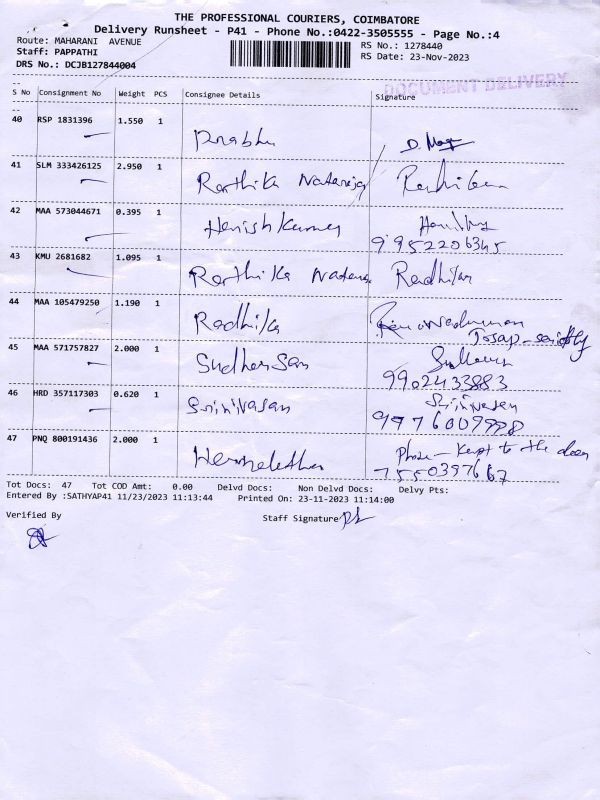 THE PROFESSIONAL COURIERS, COIMBATORE
Delivery Runsheet - P41 - Phone No.:0422-3505555 - Page No.:4
Route: MAHARANI AVENUE
RS No.: 1278440
Staff: PAPPATHI
RS Date: 23-Nov-2023
DRS No.: DCJB127844004
DOCUMENT DELIVERY
S No Consignment No Weight PCS Consignee Details Signature
40 RSP 1831396 1.550 1 Prabhu
41 SLM 333426125 2.950 1 Karthika Nataraja
42 MAA 573044671 0.395 1 Harish Kumar
9952206345
43 KMU 2681682 1.095 1 Karthika Radhika
44 MAA 105479250 1.190 1 Radhika
45 MAA 571757827 2.000 1 Sudharsan
9902433883
46 HRD 357117303 0.620 1 Srinivasan Srinivasan
9976009998
47 PNQ 800191436 2.000 1 Phone - Kept to the door
7550397667
Tot Docs: 47 Tot COD Amt: 0.00 Delvd Docs: Non Delvd Docs: Delvy Pts:
Entered By :SATHYAP41 11/23/2023 11:13:44 Printed On: 23-11-2023 11:14:00
Verified By Staff Signature